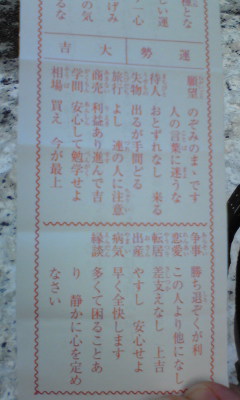 運勢 大吉
願望 のぞみのまゝです
人の言葉に迷うな
待人 おとずれなし 来る
失物 出るが手間どる
旅行 よし 連の人に注意
商売 利益あり進んで吉
学問 安心して勉学せよ
相場 買え 今が最上
争事 勝ち退ぞくが利
恋愛 この人より他になし
転居 差支えなし 上吉
出産 やすし 安心せよ
病気 早く全快します
縁談 多くて困ることあ
り 静かに心を定め
なさい